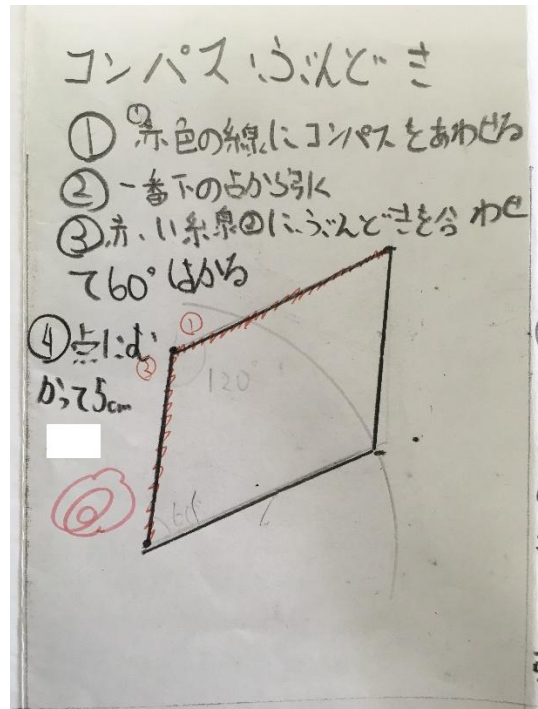 コンパス ぶんどき
① ①赤色の線にコンパスをあわせる
② 一番下の点から引く
③ 赤い線②に、ぶんどきを合わせ
て60°はかる
④ 点にむ
かって5cm
①
②
120°
60°